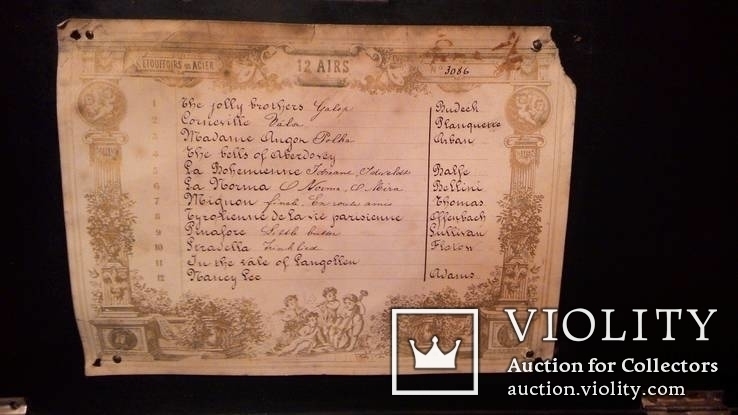 ÉTOUFFOIRS EN ACIER
12 AIRS
No 3086
1 The jolly brothers Galop Budeck
2 Corneville Vals Planquette
3 Madame Angon Polka Arban
4 The bells of Aberdovey
5 La Bohemienne Balfe
6 La Norma O Norma, O Mira Bellini
7 Mignon finale, En route amis Thomas
8 Tyrolienne de la vie parisienne Offenbach
9 Penafore Sullivan
10 Stradella Trinklied Flotow
11 In the vale of Langollen
12 Nancy Lee Adams
VIOLITY
Auction for Collectors
auction.violity.com